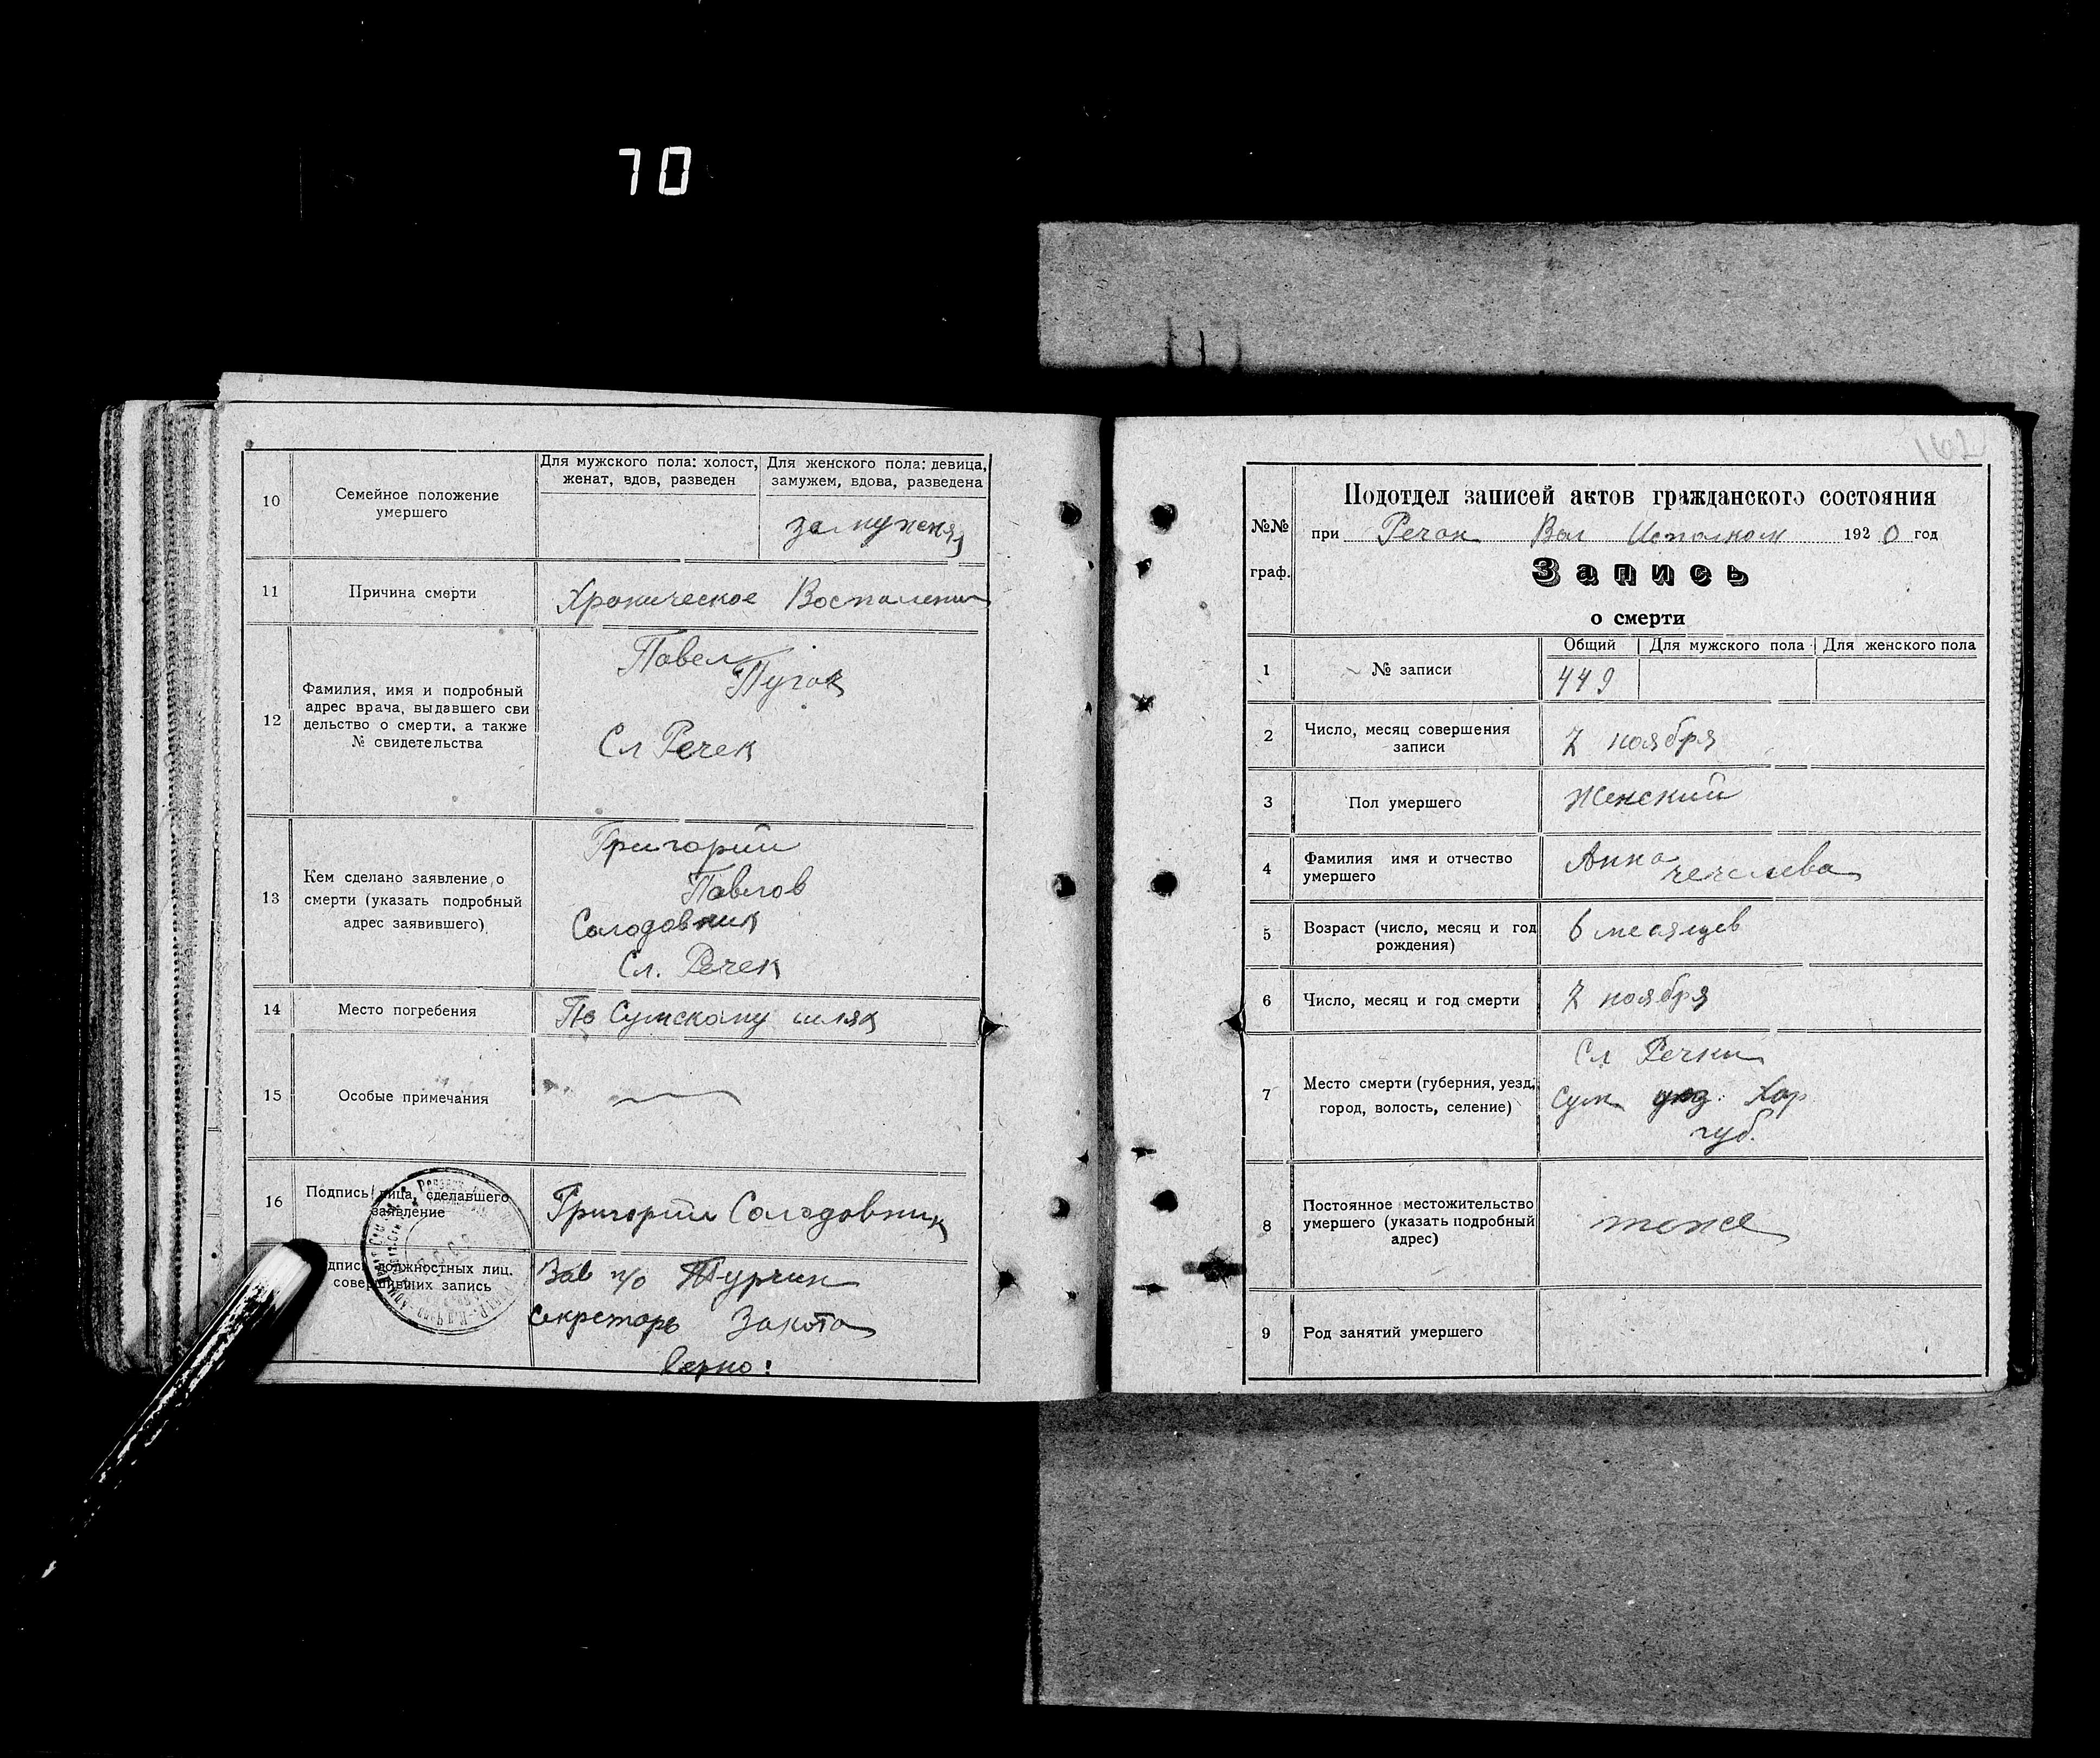 70
10
Семейное положение
умершего
Для мужского пола: холост,
женат, вдов, разведен
Для женского пола: девица,
замужем, вдова, разведена
замужняя
11
Причина смерти
Хроническое Воспаление
12
Фамилия, имя и подробный
адрес врача, выдавшего сви
дельство о смерти, а также
№ свидетельства
Павел
Сл Речек
13
Кем сделано заявление о
смерти (указать подробный
адрес заявившего)
Григорий
Павлов
Солодовник
Сл. Речек
14
Место погребения
По Сумскому шлях
15
Особые примечания
16
Подпись лица, сделавшего
заявление
Григорий Солодовник
должностных лиц.
совершивших запись
Зав п/о Турчин
Секретарь
Верно:
162
№№
граф.
Подотдел записей актов гражданского состояния
при Речан Вол Исполком 1920 год
Запись
о смерти
1
№ записи
Общий
Для мужского пола
Для женского пола
449
2
Число, месяц совершения
записи
7 ноября
3
Пол умершего
Женский
4
Фамилия имя и отчество
умершего
Анна
5
Возраст (число, месяц и год
рождения)
6 месяцев
6
Число, месяц и год смерти
7 ноября
7
Место смерти (губерния, уезд,
город, волость, селение)
Сл Речки
Сум уезд. Хар
губ.
8
Постоянное местожительство
умершего (указать подробный
адрес)
тоже
9
Род занятий умершего